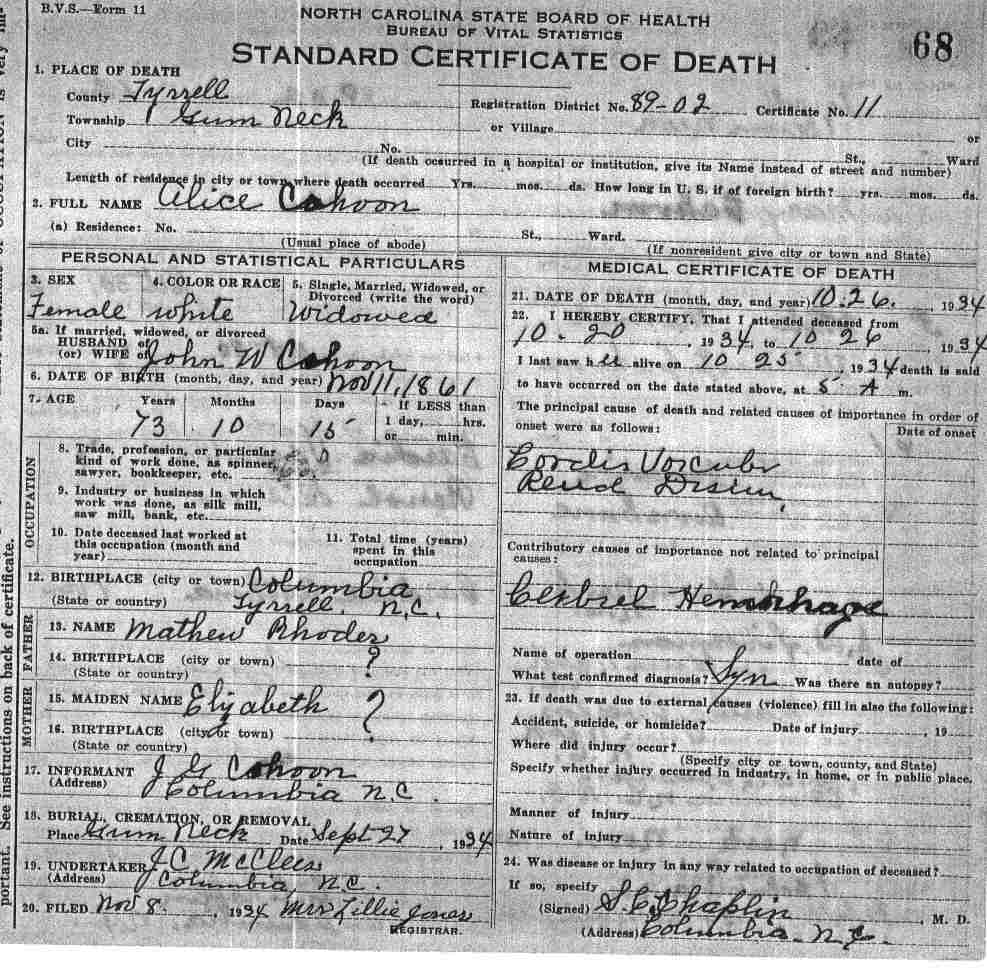 B.V.S.—Form 11
NORTH CAROLINA STATE BOARD OF HEALTH
BUREAU OF VITAL STATISTICS
STANDARD CERTIFICATE OF DEATH
68
1. PLACE OF DEATH
County Tyrrell
Registration District No. 89-02 Certificate No. 11
Township Gum Neck or Village or
City No. St., Ward
(If death occurred in a hospital or institution, give its Name instead of street and number)
Length of residence in city or town where death occurred Yrs. mos. ds. How long in U. S. if of foreign birth? yrs. mos. ds.
2. FULL NAME Alice Cahoon
(a) Residence: No. St., Ward.
(Usual place of abode) (If nonresident give city or town and State)
PERSONAL AND STATISTICAL PARTICULARS
3. SEX 4. COLOR OR RACE 5. Single, Married, Widowed, or
Divorced (write the word)
Female white Widowed
5a. If married, widowed, or divorced
HUSBAND of
(or) WIFE of John W Cahoon
6. DATE OF BIRTH (month, day, and year) Nov 11, 1861
7. AGE Years Months Days If LESS than
1 day, hrs.
or min.
73 10 15
OCCUPATION
8. Trade, profession, or particular
kind of work done, as spinner,
sawyer, bookkeeper, etc.
9. Industry or business in which
work was done, as silk mill,
saw mill, bank, etc.
10. Date deceased last worked at
this occupation (month and
year)
11. Total time (years)
spent in this
occupation
12. BIRTHPLACE (city or town) Columbia
(State or country) Tyrrell, N.C.
FATHER
13. NAME Mathew Rhodes
14. BIRTHPLACE (city or town) ?
(State or country)
MOTHER
15. MAIDEN NAME Elizabeth ?
16. BIRTHPLACE (city or town)
(State or country)
17. INFORMANT J G Cahoon
(Address) Columbia N.C.
18. BURIAL, CREMATION, OR REMOVAL
Place Gum Neck Date Sept 27, 1934
19. UNDERTAKER J.C. McClees
(Address) Columbia, N.C.
20. FILED Nov 8, 1934 Mrs Lillie Jones
REGISTRAR.
MEDICAL CERTIFICATE OF DEATH
21. DATE OF DEATH (month, day, and year) 10.26. 1934
22. I HEREBY CERTIFY, That I attended deceased from
10.20, 1934, to 10 26, 1934
I last saw h er alive on 10 25, 1934 death is said
to have occurred on the date stated above, at 5 A m.
The principal cause of death and related causes of importance in order of
onset were as follows:
Date of onset
Contributory causes of importance not related to principal
causes:
Hemorhage
Name of operation date of
What test confirmed diagnosis? Syn Was there an autopsy?
23. If death was due to external causes (violence) fill in also the following:
Accident, suicide, or homicide? Date of injury , 19
Where did injury occur?
(Specify city or town, county, and State)
Specify whether injury occurred in industry, in home, or in public place.
Manner of injury
Nature of injury
24. Was disease or injury in any way related to occupation of deceased?
If so, specify
(Signed) S.C. Chaplin, M. D.
(Address) Columbia N.C.
portant. See instructions on back of certificate.